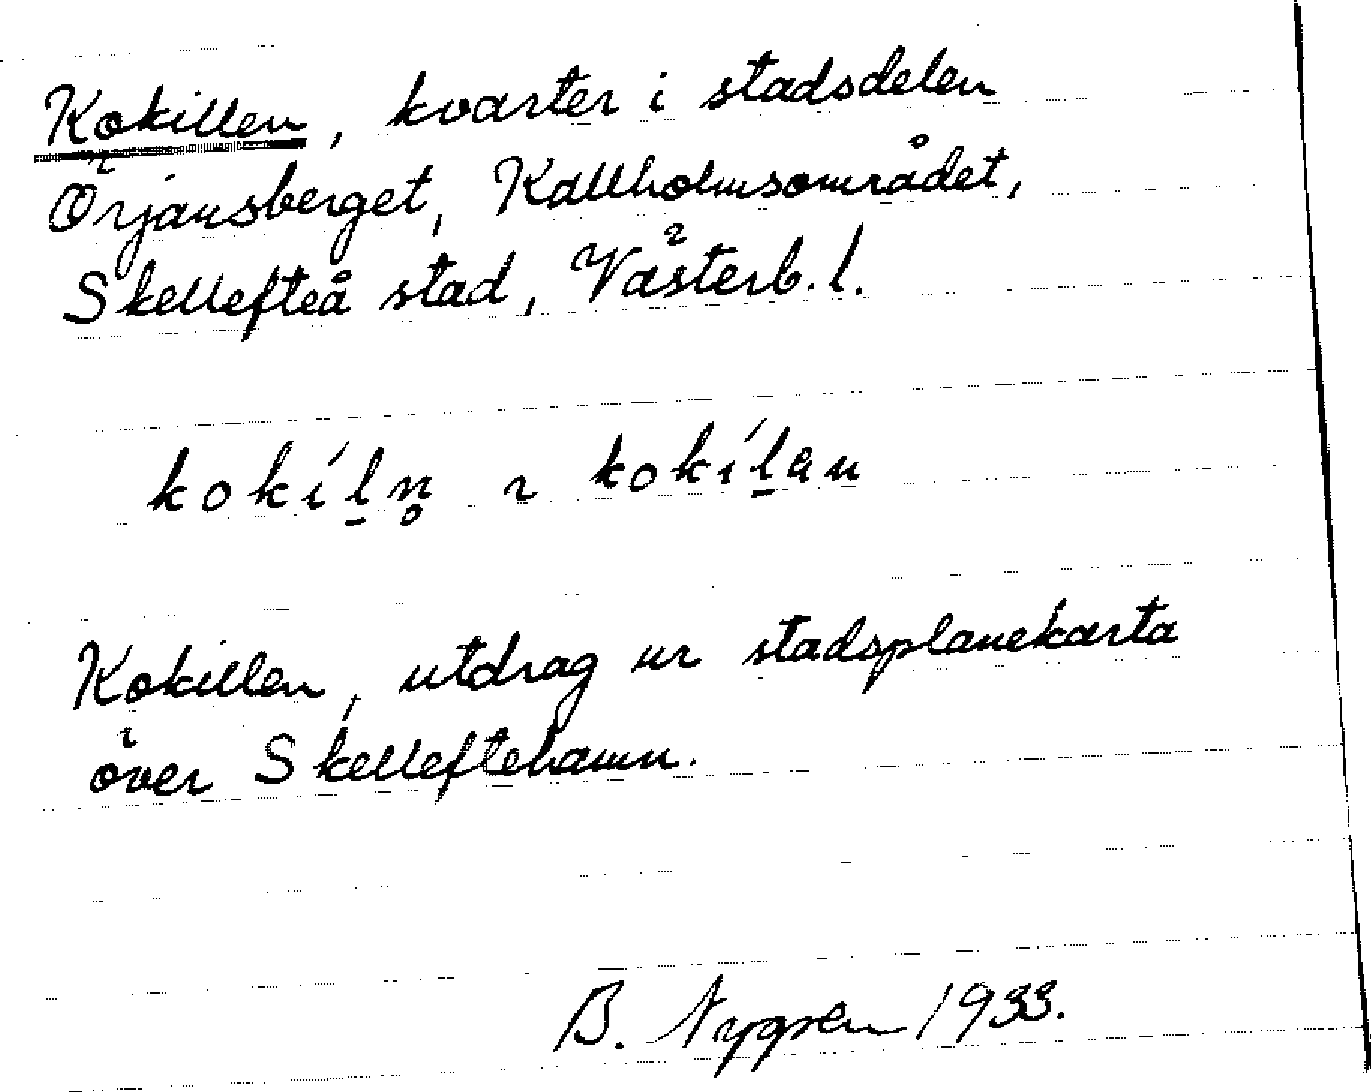 Kokillen, kvarter i stadsdelen
Örjansberget, Kallholmsområdet,
Skellefteå stad, Västerb. l.
kokíl̠n̥ ~ kokíl̠an
Kokillen, utdrag ur stadsplanekarta
över Skelleftehamn.
B. Nygren 1933.